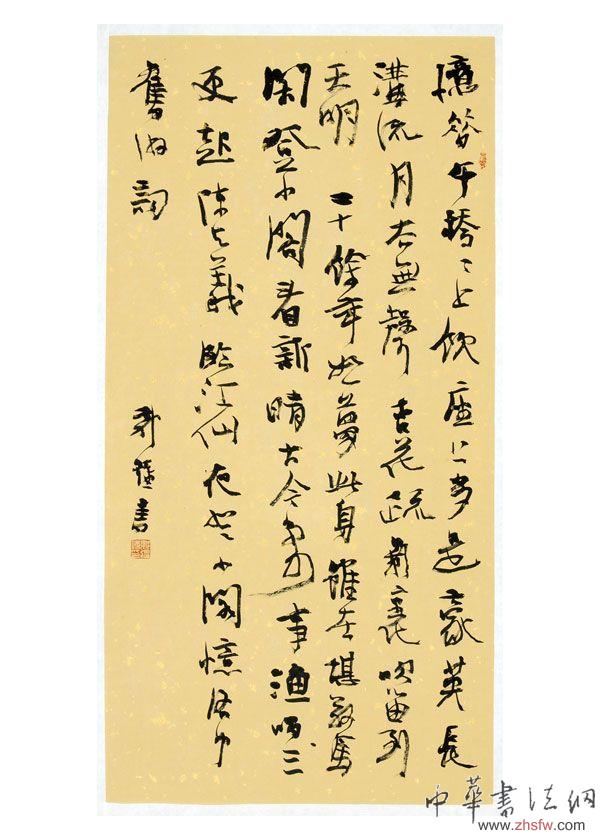 憶昔午橋〻上飲座上多是豪英長
溝流月去無聲杏花疏影裏吹笛到
天明 二十餘年如夢此身雖在堪驚
閑登小閣看新晴古今多少事漁唱三
更起陳與義臨江仙夜登小閣憶洛中
舊遊詞
書
中華書法網
www.zhsfw.com